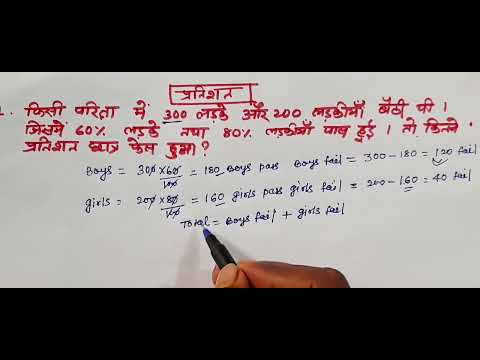 प्रतिशत
1. किसी परिक्षा में 300 लड़के और 200 लड़कीयाँ बैठी थी।
जिसमें 60% लड़के तथा 80% लड़कीयाँ पास हुई। तो कितने
प्रतिशत छात्र फेल हुआ?
Boys = 300×60/100 = 180 Boys pass Boys fail = 300-180 = 120 fail
girls = 200×80/100 = 160 girls pass girls fail = 200-160 = 40 fail
Total = Boys fail + girls fail